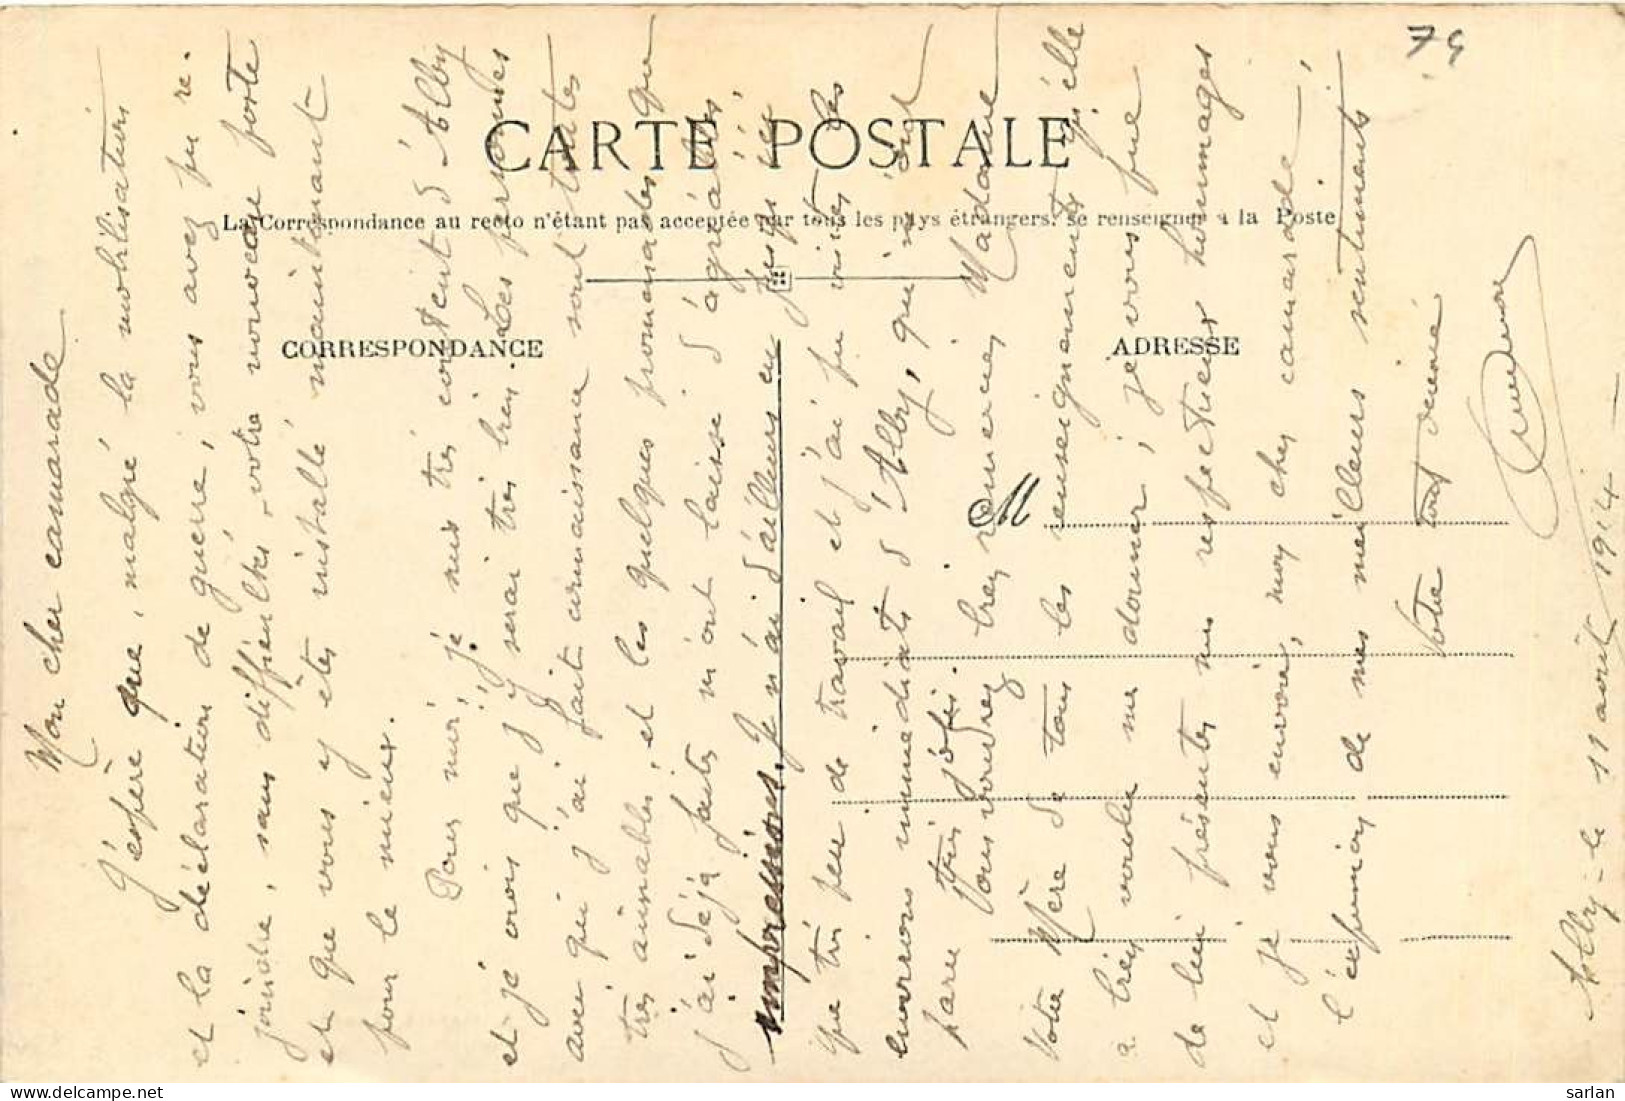 74
CARTE POSTALE
La Correspondance au recto n'étant pas acceptée par tous les pays étrangers. se renseigner à la Poste
CORRESPONDANCE
ADRESSE
M
Mon cher camarade
J'espère que, malgré la mobilisation
et la déclaration de guerre, vous avez pu re-
joindre, sans difficultés, votre nouveau poste
et que vous y êtes installé maintenant
pour le mieux.
Pour moi, je suis très content d'Alby
et je crois que j'y serai très bien. Les personnes
avec qui j'ai fait connaissance sont toutes
très aimables, et les quelques promenades que
j'ai déjà faites m'ont laissé d'agréables
impressions. Je n'ai d'ailleurs eu jusqu'ici
que très peu de travail et j'ai pu visiter les
environs immédiats d'Alby, qui m'ont
paru très jolis.
Vous voudrez bien remercier Madame
votre Mère de tous les renseignements qu'elle
a bien voulu me donner, je vous prie
de lui présenter mes respectueux hommages
et je vous envoie, mon cher camarade,
l'expression de mes meilleurs sentiments
Votre tout dévoué
Alby - le 11 août 1914 -
sarlan